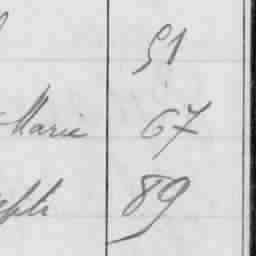 51
Marie 67
89